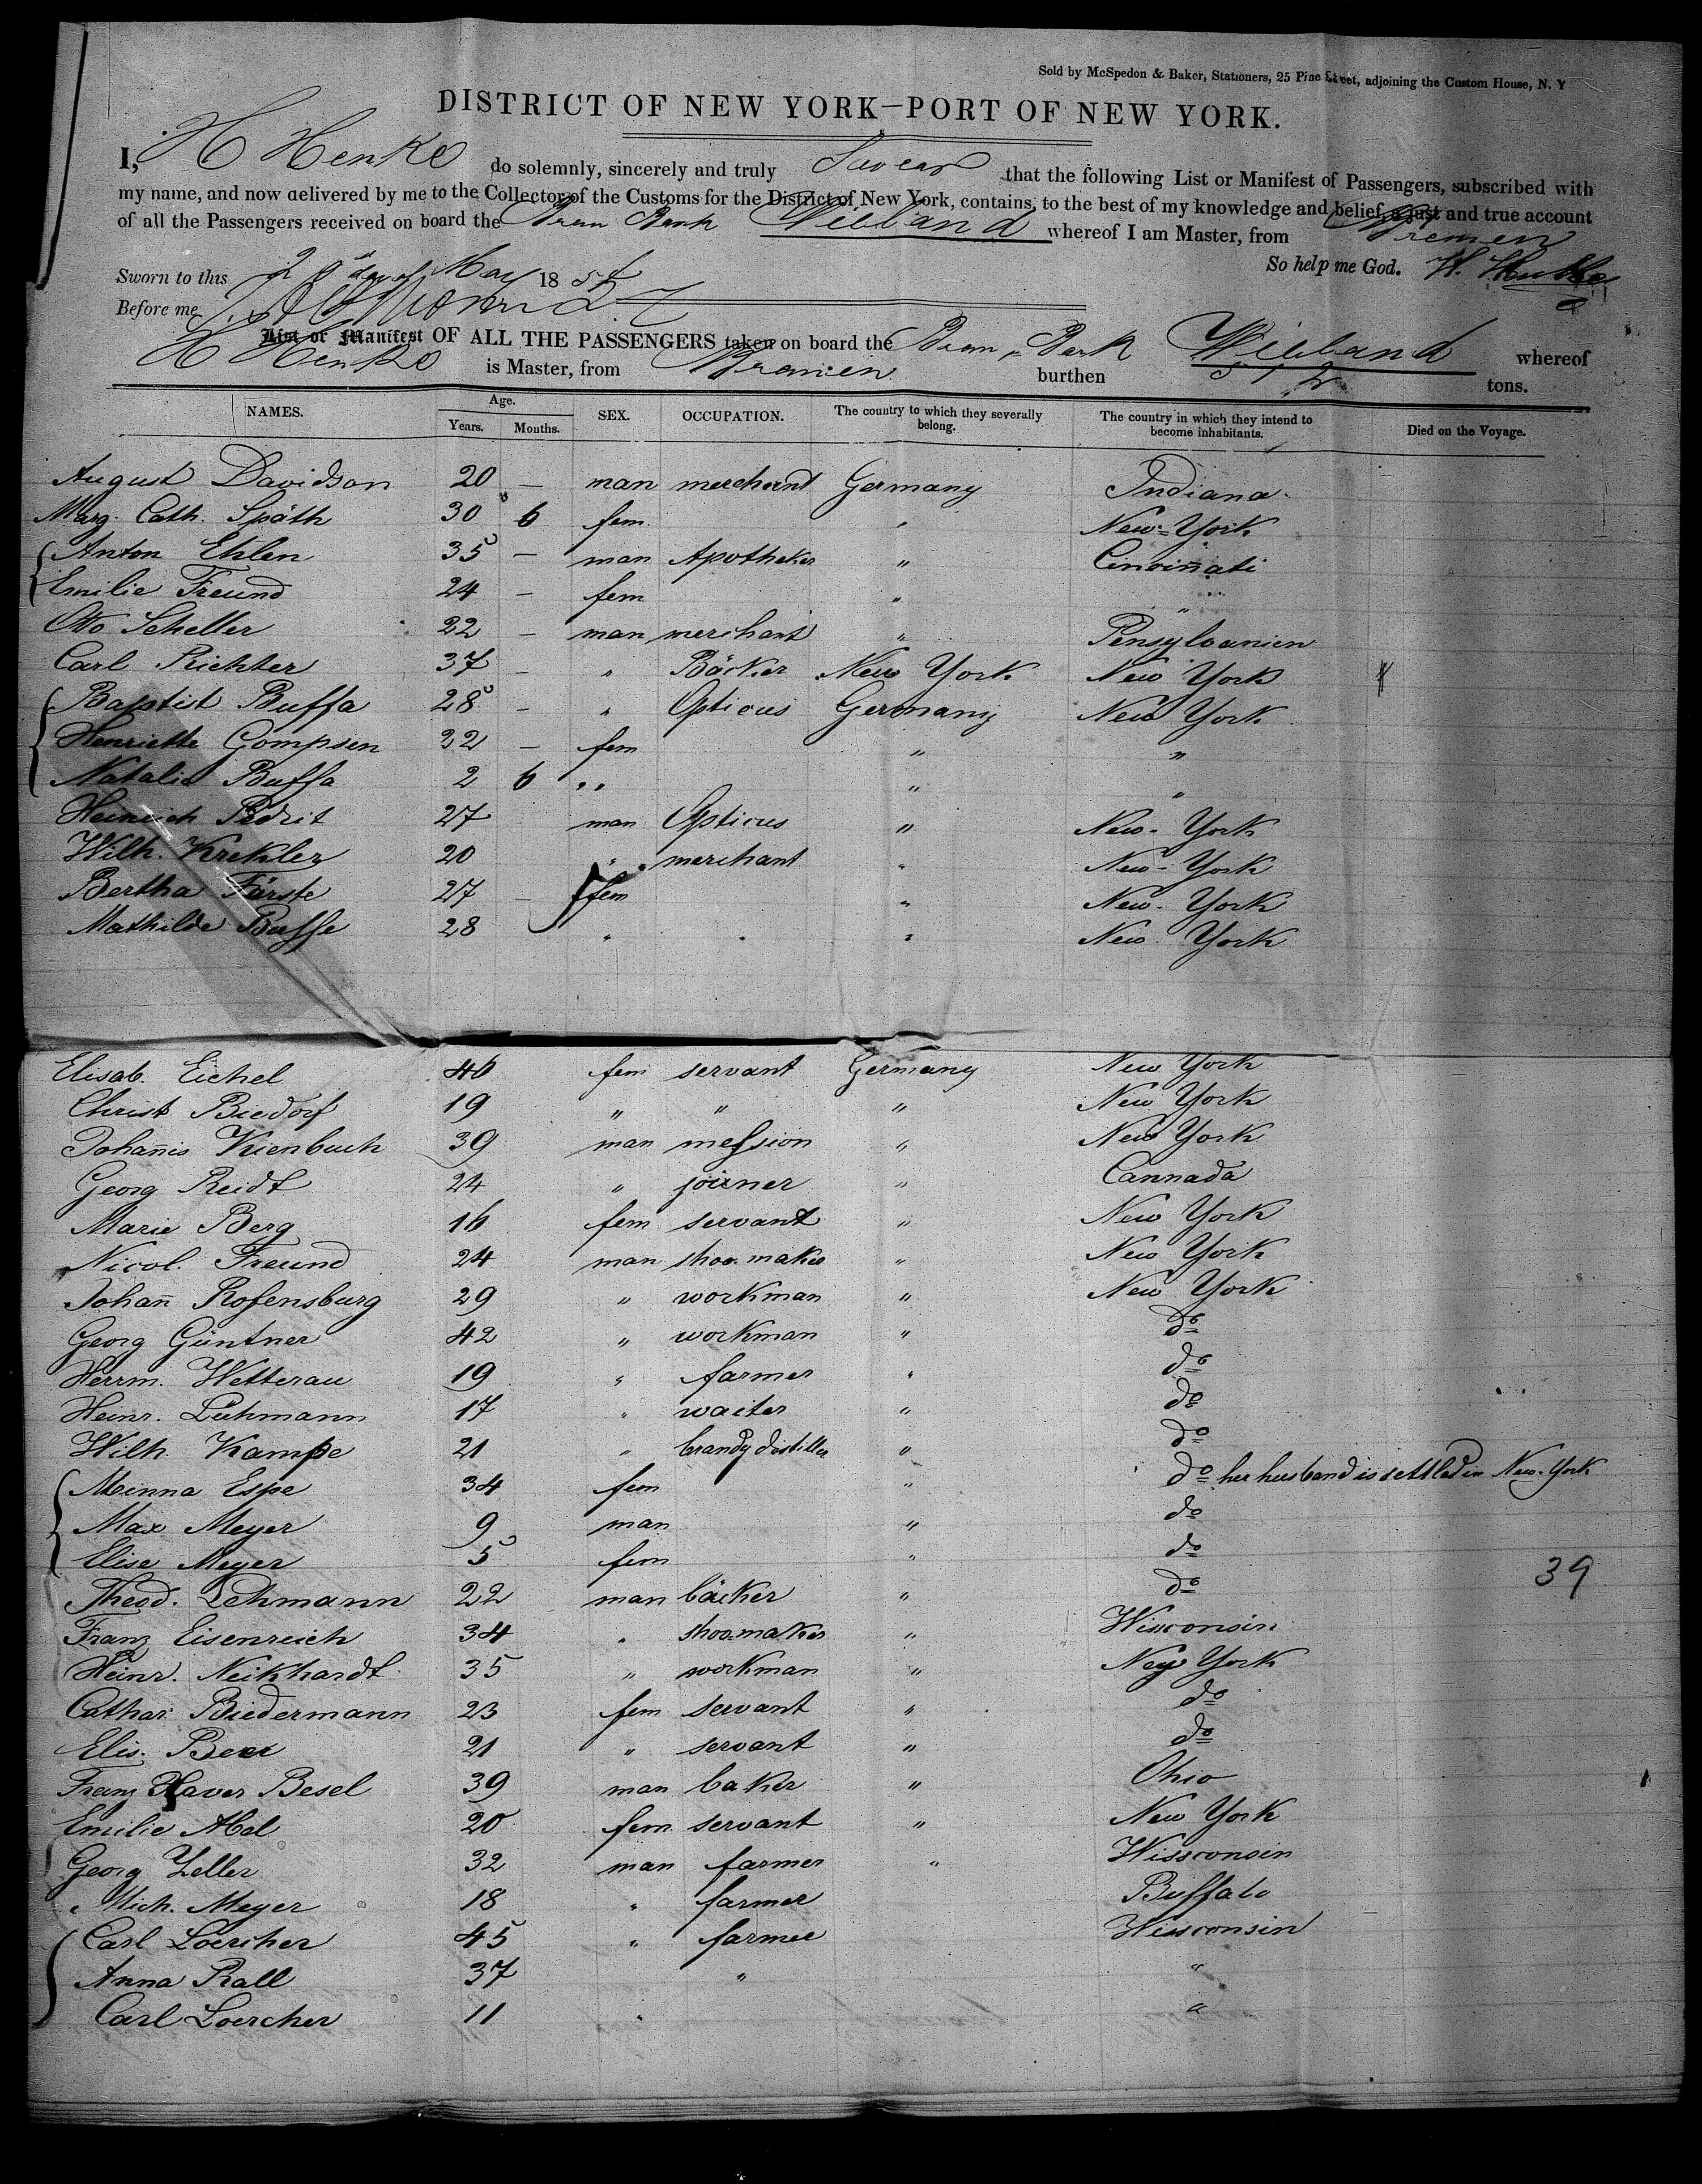 Sold by McSpedon & Baker, Stationers, 25 Pine Street, adjoining the Custom House, N. Y
DISTRICT OF NEW YORK—PORT OF NEW YORK.
I, H Henke do solemnly, sincerely and truly Swear that the following List or Manifest of Passengers, subscribed with
my name, and now delivered by me to the Collector of the Customs for the District of New York, contains, to the best of my knowledge and belief, a just and true account
of all the Passengers received on board the Brem Bark Wieland whereof I am Master, from Bremen
So help me God. H. Henke
Sworn to this day of May 1854
Before me
List or Manifest OF ALL THE PASSENGERS taken on board the Brem Bark Wieland whereof
H Henke is Master, from Bremen burthen tons.
NAMES. Age. Years. Months. SEX. OCCUPATION. The country to which they severally belong. The country in which they intend to become inhabitants. Died on the Voyage.
August Davidson 20 — man merchant Germany Indiana
Marg. Cath. Späth 30 6 fem " New-York
Anton Ehlen 35 — man Apotheker " Cincinnati
Emilie Freund 24 — fem " "
Otto Scheller 22 — man merchant " Pensylvanien
Carl Richter 37 — " Bäcker New York New York
Baptist Buffa 28 — " Opticus Germany New York
Henriette Gompsen 22 — fem " "
Natalie Buffa 2 6 " " "
Heinrich 27 man Opticus " New-York
Wilh. Krekler 20 " merchant " New-York
Bertha Färste 27 — fem " New-York
Mathilde Buffe 28 " " " New York
Elisab. Eichel 46 fem servant Germany New York
Christ. Biedorf 19 " " " New York
Johan̄is Kienbuch 39 man " New York
Georg Reidt 24 " joiner " Cannada
Marie Berg 16 fem servant " New York
Nicol. Freund 24 man shoo-maker " New York
Johan̄ Rosensburg 29 " workman " New York
Georg Güntner 42 " workman " do
Herrm. Wetterau 19 " farmer " do
Heinr. Lühmann 17 " waiter " do
Wilh. Kampe 21 " brandy distiller " do
Meinna Espe 34 fem " do her husband is settled in New-York
Max Meyer 9 man " do
Elise Meyer 5 fem " do
39
Theod. Lehmann 22 man bäcker " do
Franz Eisenreich 34 " shoo-maker " Wisconsin
Heinr. Neikhardt 35 " workman " New York
Cathar. Biedermann 23 fem servant " do
Elis. 21 " servant " do
Franz Xaver Besel 39 man baker " Ohio
Emilie Abel 20 fem servant " New York
Georg Zeller 32 man farmer " Wissconsin
Mich. Meyer 18 " farmer Buffalo
Carl Loercher 45 " farmer Wissconsin
Anna Rall 37 " "
Carl Loercher 11 " "